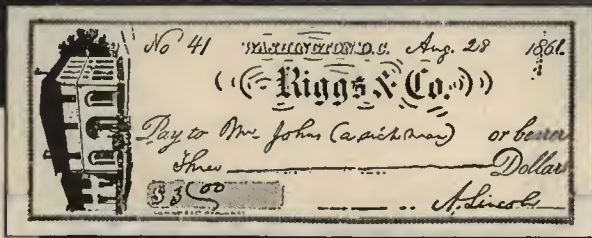 No 41 WASHINGTON, D.C. Aug. 28 1861.
Riggs & Co.
Pay to Mr. Johns (a sick man) or bearer
Three Dollars
$3 00
A. Lincoln